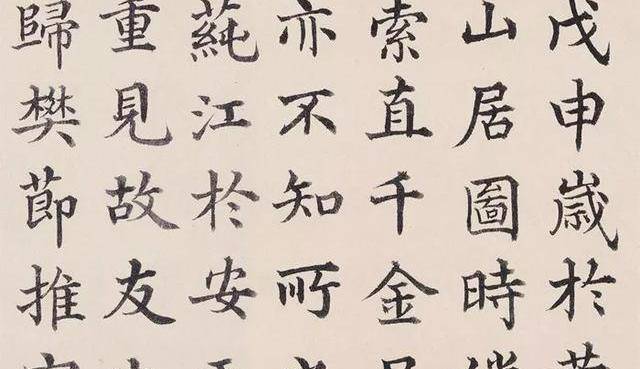 戊申歲於
山居圖時
索直千金
亦不知所
蒓江於安
重見故友
歸樊節推